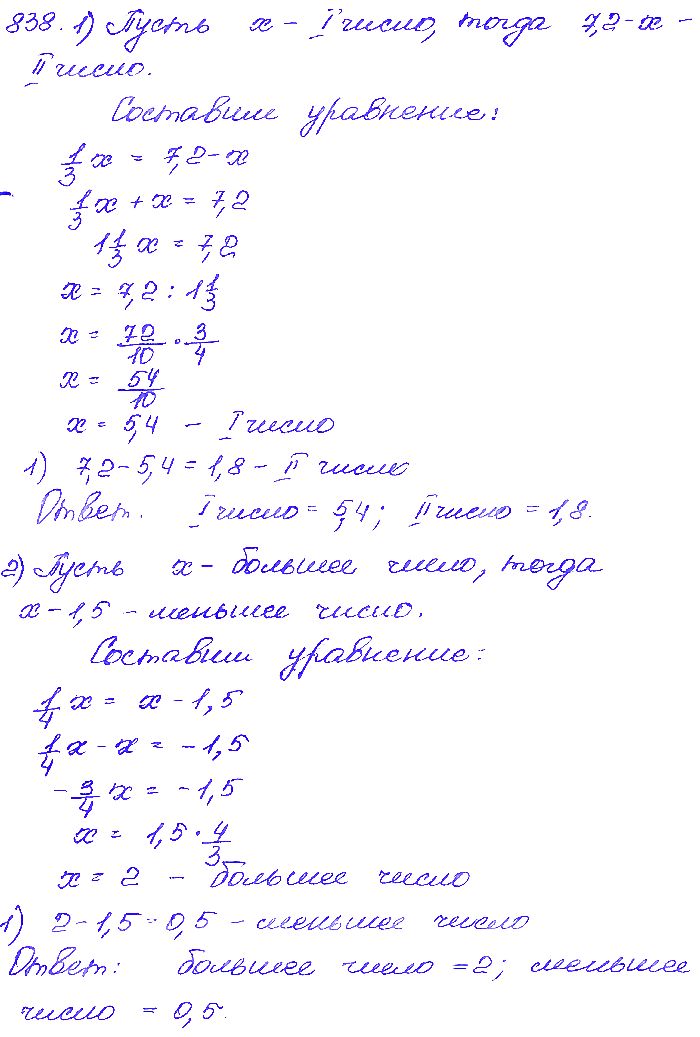 838. 1) Пусть x - I число, тогда 7,2-x -
II число.
Составим уравнение:
1/3 x = 7,2-x
1/3 x + x = 7,2
1 1/3 x = 7,2
x = 7,2 : 1 1/3
x = 72/10 · 3/4
x = 54/10
x = 5,4 - I число
1) 7,2-5,4 = 1,8 - II число
Ответ. I число = 5,4; II число = 1,8.
2) Пусть x - большее число, тогда
x - 1,5 - меньшее число.
Составим уравнение:
1/4 x = x - 1,5
1/4 x - x = -1,5
-3/4 x = -1,5
x = 1,5 · 4/3
x = 2 - большее число
1) 2-1,5=0,5 - меньшее число
Ответ: большее число =2; меньшее
число = 0,5.